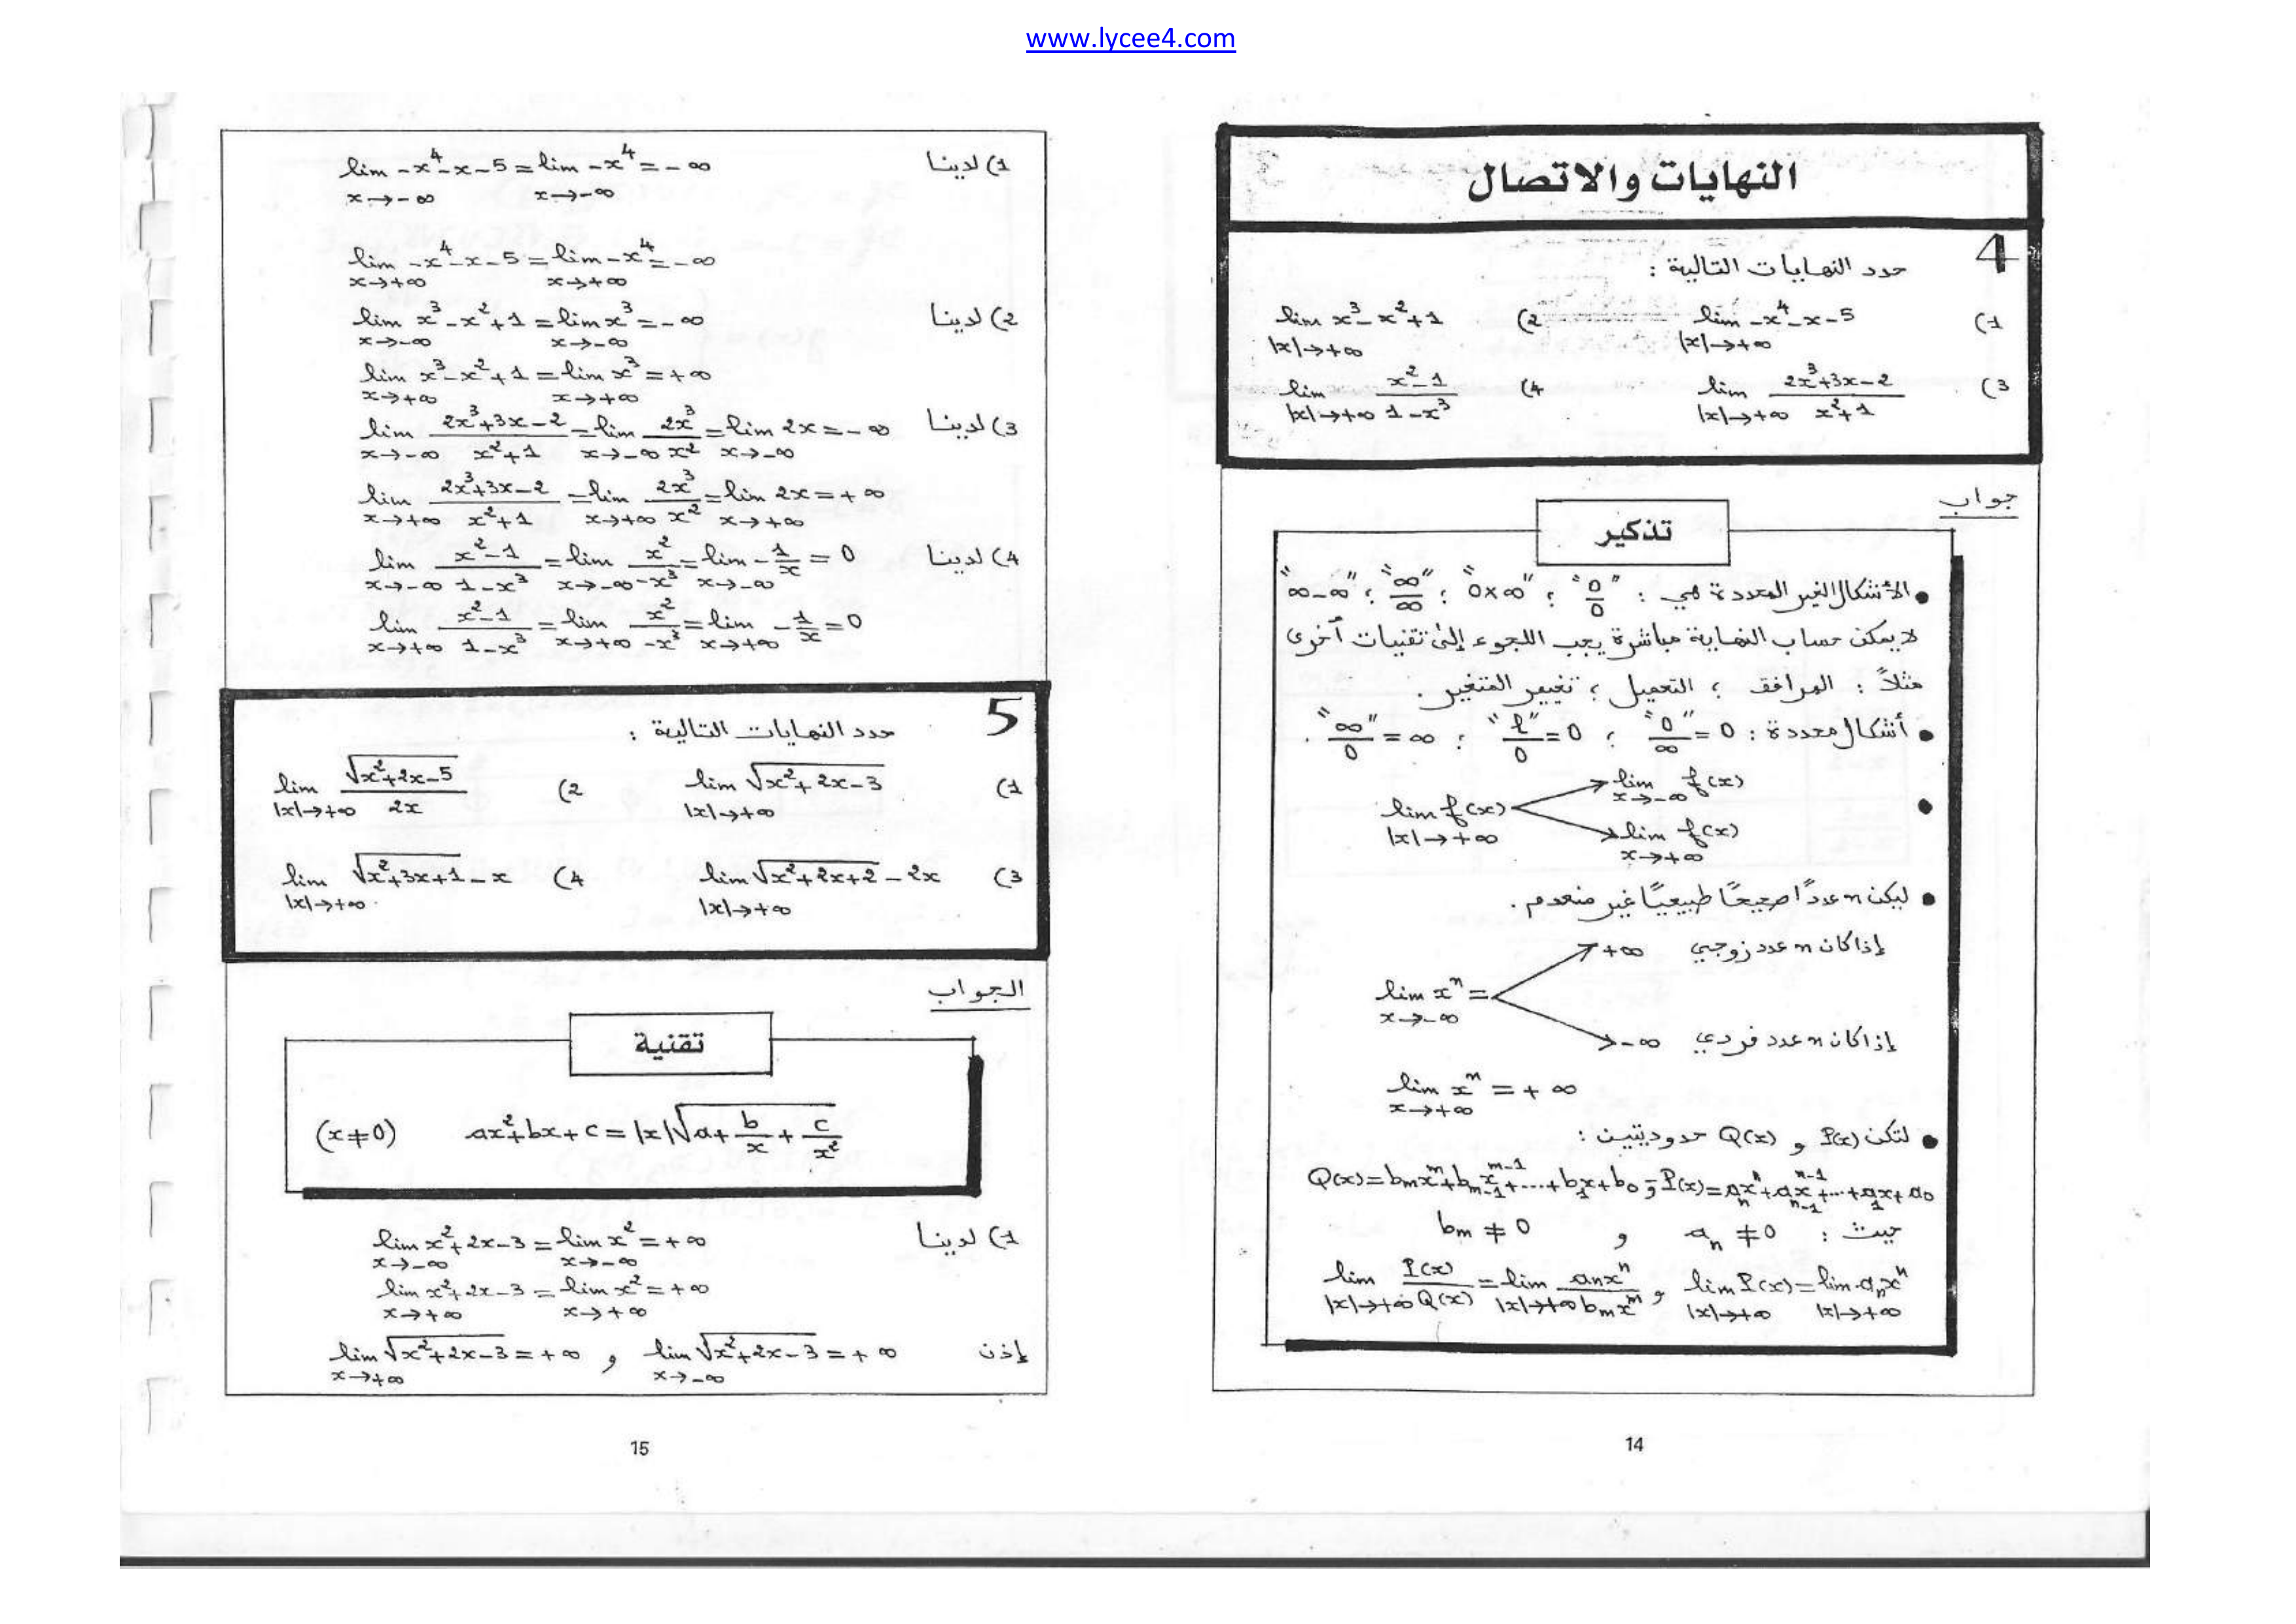 www.lycee4.com
النهايات والاتصال
4
حدد النهايات التالية :
1) lim -x⁴-x-5 |x|→+∞ 2) lim x³-x²+1 |x|→+∞
3) lim (2x³+3x-2)/(x²+1) |x|→+∞ 4) lim (x²-1)/(1-x³) |x|→+∞
جواب
تذكير
• الأشكال الغير المحددة هي : "0/0" ؛ "0×∞" ؛ "∞/∞" ؛ "∞-∞"
لا يمكن حساب النهاية مباشرة يجب اللجوء إلى تقنيات أخرى
مثلاً : المرافق ؛ التعميل ؛ تغيير المتغير .
• أشكال محددة : "0/∞" = 0 ؛ "ℓ/0" = 0 ؛ "∞/0" = ∞ .
• lim f(x) |x|→+∞ → lim f(x) x→-∞ → lim f(x) x→+∞
• ليكن n عدداً صحيحاً طبيعياً غير منعدم .
إذا كان n عدد زوجي +∞
lim xⁿ = x→-∞
إذا كان n عدد فردي -∞
lim xⁿ = +∞ x→+∞
• لتكن P(x) و Q(x) حدوديتين :
P(x)=aₙxⁿ+aₙ₋₁xⁿ⁻¹+...+a₁x+a₀ و Q(x)=bₘxᵐ+bₘ₋₁xᵐ⁻¹+...+b₁x+b₀
حيث : aₙ ≠ 0 و bₘ ≠ 0
lim P(x) = lim aₙxⁿ |x|→+∞ |x|→+∞ و lim P(x)/Q(x) = lim aₙxⁿ/bₘxᵐ |x|→+∞ |x|→+∞
14
1) لدينا lim -x⁴-x-5 = lim -x⁴ = -∞
x→-∞ x→-∞
lim -x⁴-x-5 = lim -x⁴ = -∞
x→+∞ x→+∞
2) لدينا lim x³-x²+1 = lim x³ = -∞
x→-∞ x→-∞
lim x³-x²+1 = lim x³ = +∞
x→+∞ x→+∞
3) لدينا lim (2x³+3x-2)/(x²+1) = lim 2x³/x² = lim 2x = -∞
x→-∞ x→-∞ x→-∞
lim (2x³+3x-2)/(x²+1) = lim 2x³/x² = lim 2x = +∞
x→+∞ x→+∞ x→+∞
4) لدينا lim (x²-1)/(1-x³) = lim x²/-x³ = lim -1/x = 0
x→-∞ x→-∞ x→-∞
lim (x²-1)/(1-x³) = lim x²/-x³ = lim -1/x = 0
x→+∞ x→+∞ x→+∞
5
حدد النهايات التالية :
1) lim √(x²+2x-3) |x|→+∞ 2) lim √(x²+2x-5)/2x |x|→+∞
3) lim √(x²+2x+2) - 2x |x|→+∞ 4) lim √(x²+3x+1) - x |x|→+∞
الجواب
تقنية
ax²+bx+c = |x|√(a+b/x+c/x²) (x≠0)
1) لدينا lim x²+2x-3 = lim x² = +∞
x→-∞ x→-∞
lim x²+2x-3 = lim x² = +∞
x→+∞ x→+∞
إذن lim √(x²+2x-3) = +∞ x→-∞ و lim √(x²+2x-3) = +∞ x→+∞
15